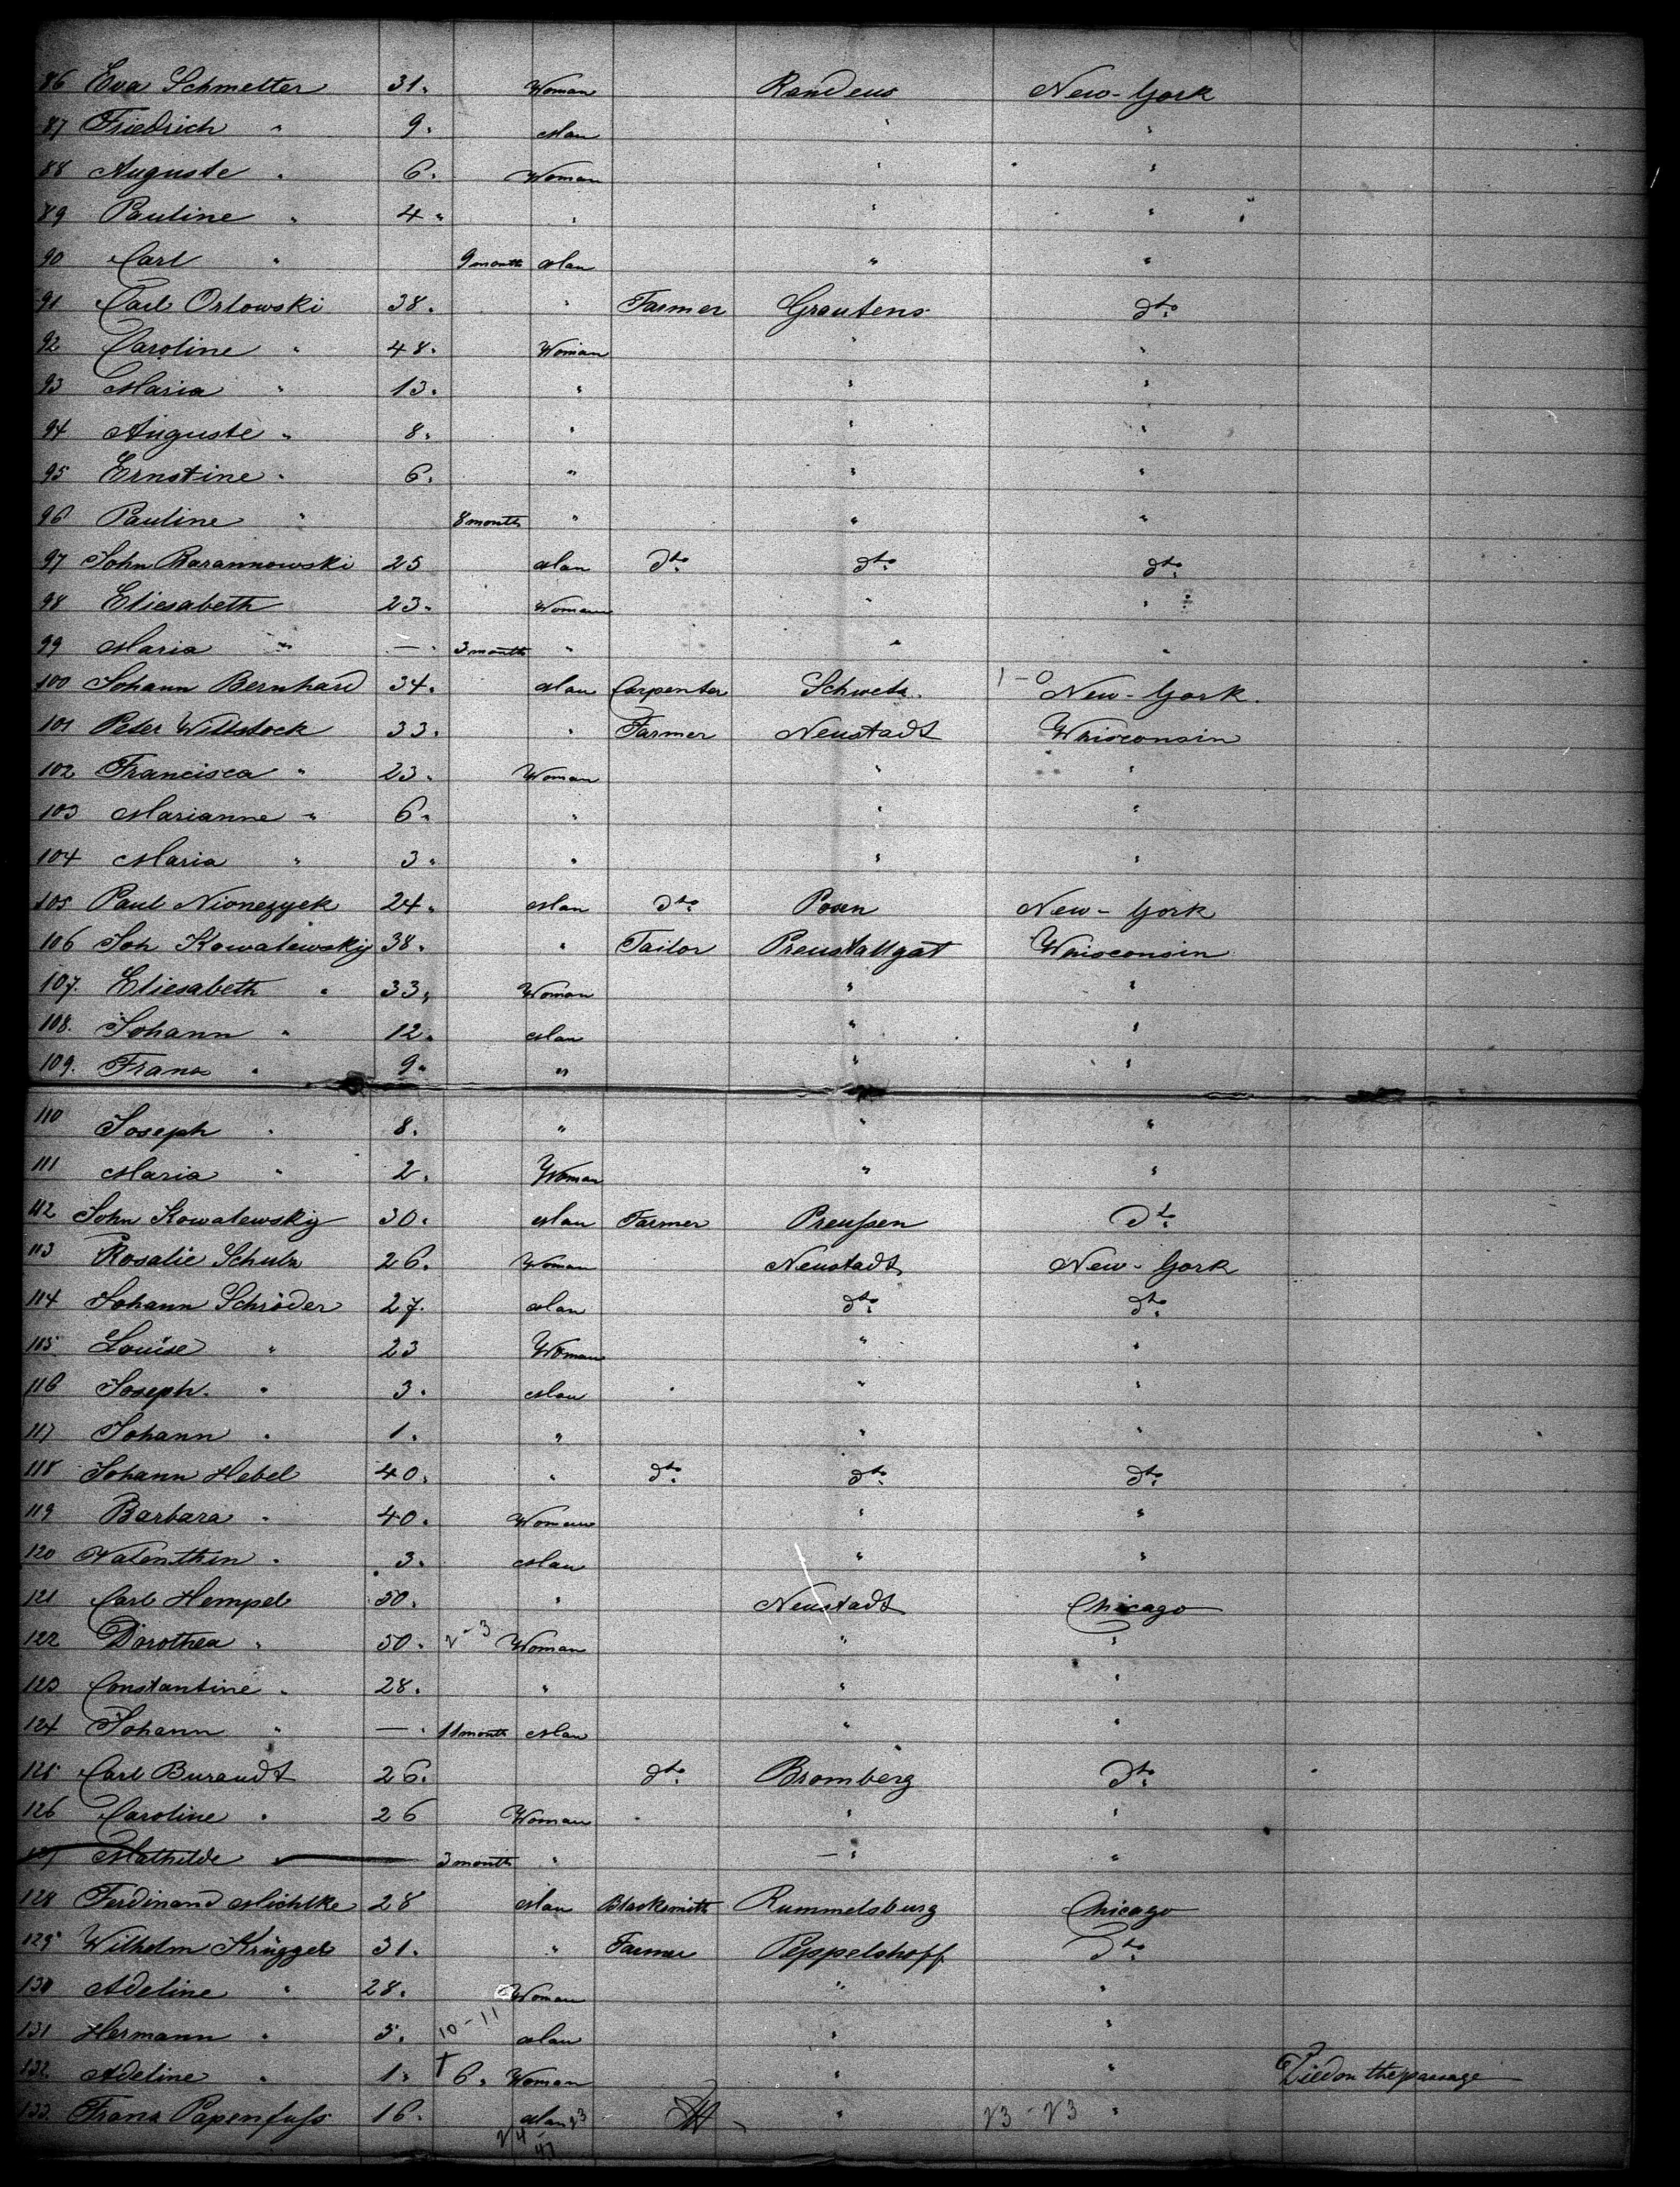 86 Eva Schmelter 31. Woman Randens New-York
87 Friedrich " 9. Man " "
88 Auguste " 6. Woman " "
89 Pauline " 4 " " " "
90 Carl " 9 months Man " "
91 Carl Orlowski 38. " Farmer Grautens dto.
92 Caroline " 48. Woman " "
93 Maria " 13. " " "
94 Auguste " 8. " " "
95 Ernstine " 6. " " "
96 Pauline " 8 months " " "
97 John Barannowski 25 Man dto. dto. dto.
98 Eliesabeth 23. Woman " "
99 Maria " — 3 months " " "
100 Johann Bernhard 34. Man Carpenter Schwetz. 1-0 New-York.
101 Peter Wittstock 33. " Farmer Neustadt Whisconsin
102 Francisca " 23. Woman " "
103 Marianne " 6. " " "
104 Maria " 3. " " "
105 Paul 24. Man dto. Posen New-York
106 Joh Kowalewskij 38. " Tailor Preustallgat Whisconsin
107. Eliesabeth " 33. Woman " "
108. Johann " 12. Man " "
109. Franz " 9. " " "
110 Joseph " 8. " " "
111 Maria " 2. Woman " "
112 John Kowalewskij 30. Man Farmer Preußen dto.
113 Rosalie Schulz 26. Woman Neustadt New-York
114 Johann Schröder 27. Man dto. dto.
115 Louise " 23 Woman " "
116 Joseph. " 3. Man " "
117 Johann " 1. " " "
118 Johann Hebel 40. " dto. dto. dto.
119 Barbara " 40. Woman " "
120 Valenthin " 3. Man " "
121 Carl Hempel 50. " Neustadt Chicago
122 Dorothea " 50. 2-3 Woman " "
123 Constantine " 28. " " "
124 Johann " — 11 months Man " "
125 Carl Burandt 26. dto. Bromberg dto.
126 Caroline " 26 Woman " "
127 Mathilde " 3 months " — " "
128 Ferdinand Michlke 28 Man Blacksmith Rummelsburg Chicago
129 Wilhelm Krüggel 31. " Farmer Peppelshoff dto.
130 Adeline " 28. Woman " "
131 Hermann " 5. 10-11 Man " "
132 Adeline " 1. + 6. Woman " " Died on the passage
133. Franz Papenfuß 16. Man 23 " 23-23 "
24-47